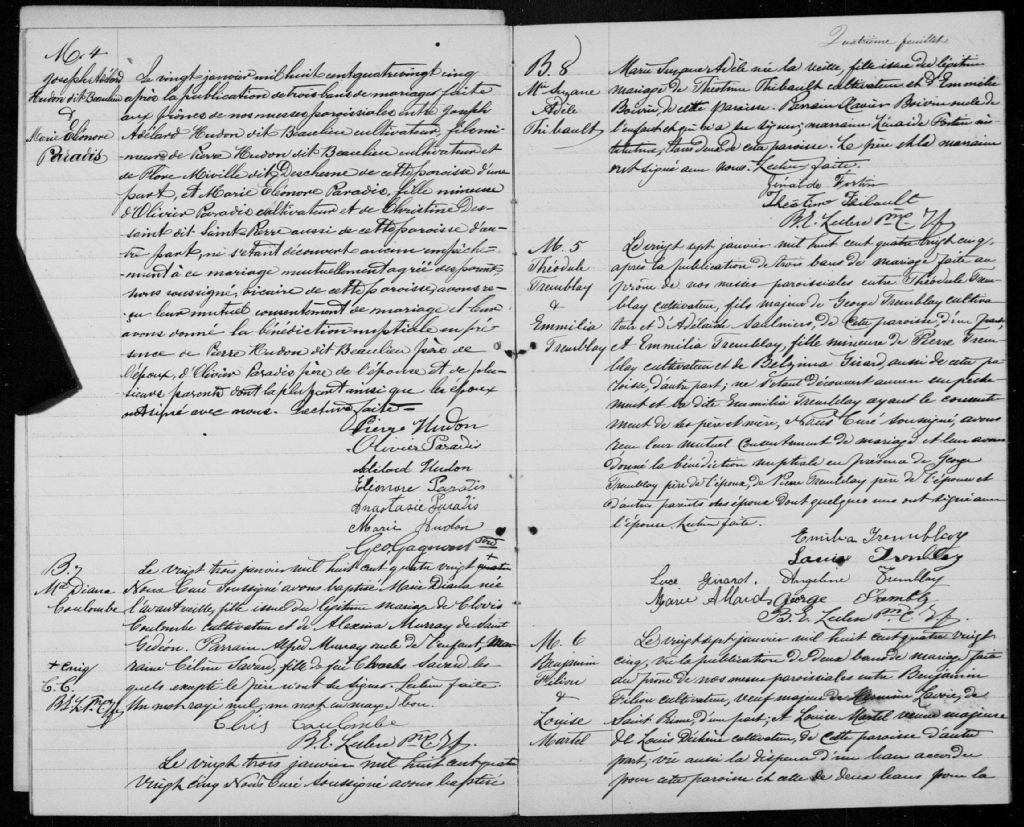 M. 4
Joseph Adélard
Hudon dit Beaulieu
&
Marie Eléonore
Paradis
Le vingt janvier mil huit cent quatre vingt cinq
après la publication de trois bans de mariages faite
aux prônes de nos messes paroissiales entre Joseph
Adélard Hudon dit Beaulieu cultivateur, fils mi-
neur de Pierre Hudon dit Beaulieu cultivateur et
de Flore Miville dit Deschesne de cette paroisse d'une
part, et Marie Eléonore Paradis, fille mineure
d'Olivier Paradis cultivateur et de Christine Des-
saint dit Saint-Pierre aussi de cette paroisse d'au-
tre part, ne s'étant découvert aucun empêche-
ment à ce mariage mutuellement agréé des parents
nous soussigné, vicaire de cette paroisse, avons re-
çu leur mutuel consentement de mariage et leur
avons donné la bénédiction nuptiale en pré-
sence de Pierre Hudon dit Beaulieu père de
l'époux, d'Olivier Paradis père de l'épouse et de plu-
sieurs parents dont la plupart ainsi que les époux
ont signé avec nous. Lecture faite
Pierre Hudon
Olivier Paradis
Adélard Hudon
Eléonore Paradis
Anastasie Paradis
Marie Hudon
Geo Gagnon
B. 7
Mie Diana
Coulombe
+ cinq
C. C.
B. E. L. Pmc
Le vingt trois janvier mil huit cent quatre vingt quatre +
Nous Curé soussigné avons baptisé Marie Diana née
l'avant veille, fille issue du légitime mariage de Clovis
Coulombe cultivateur et de Alexina Murray de Saint
Gédéon. Parrain Alfred Murray oncle de l'enfant, mar-
raine Céline Savard, fille de feu Charles Savard les-
quels excepté le père n'ont su signer. Lecture faite.
Un mot rayé nul, un mot en marge bon.
Clois Coulombe
B. E. Leclerc Pmc
Le vingt trois janvier mil huit cent quatre
vingt cinq Nous Curé soussigné avons baptisé
Quatrième feuillet
B. 8
Mie Suzane
Adèle
Thibault
Marie Suzane Adèle née la veille, fille issue du légitime
mariage de Théotime Thibault cultivateur et d'Emmilie
Boivin de cette paroisse. Parrain Xavier Boivin oncle de
l'enfant et qui n'a su signer; marraine Zénaïde Fortin ins-
titutrice, tous deux de cette paroisse. Le père et la marraine
ont signé avec nous. Lecture faite.
Zénaïde Fortin
Théotime Thibault
B. E. Leclerc Pmc
M. 5
Théodule
Tremblay
&
Emmilia
Tremblay
Le vingt sept janvier mil huit cent quatre vingt cinq,
après la publication de trois bans de mariage faite au
prône de nos messes paroissiales entre Théodule Trem-
blay cultivateur, fils majeur de George Tremblay cultiva-
teur et d'Adélaïde Saulniers, de cette paroisse, d'une part,
et Emmilia Tremblay, fille mineure de Pierre Trem-
blay cultivateur et de Belzimia Girard, aussi de cette pa-
roisse, d'autre part; ne s'étant découvert aucun empêche-
ment et la dite Emmilia Tremblay ayant le consente-
ment de ses père et mère, Nous Curé soussigné, avons
reçu leur mutuel consentement de mariage et leur avons
donné la bénédiction nuptiale en présence de George
Tremblay père de l'époux, de Pierre Tremblay père de l'épouse et
d'autres parents des époux dont quelques uns ont signé avec
l'épouse. Lecture faite.
Emilia Tremblay
Louis Tremblay
Luce Girard. Angeline Tremblay
Marie Allard George Tremblay
B. E. Leclerc Pmc
M. 6
Benjamin
Filion
&
Louise
Martel
Le vingt sept janvier mil huit cent quatre vingt
cinq, vu la publication de deux bans de mariage faite
au prône de nos messes paroissiales entre Benjamin
Filion cultivateur, veuf majeur de Lavoie, de
Saint Prime, d'une part; et Louise Martel veuve majeure
de Louis Déchène cultivateur, de cette paroisse d'autre
part; vu aussi la dispense d'un ban accordée
pour cette paroisse et celle de deux bans pour la